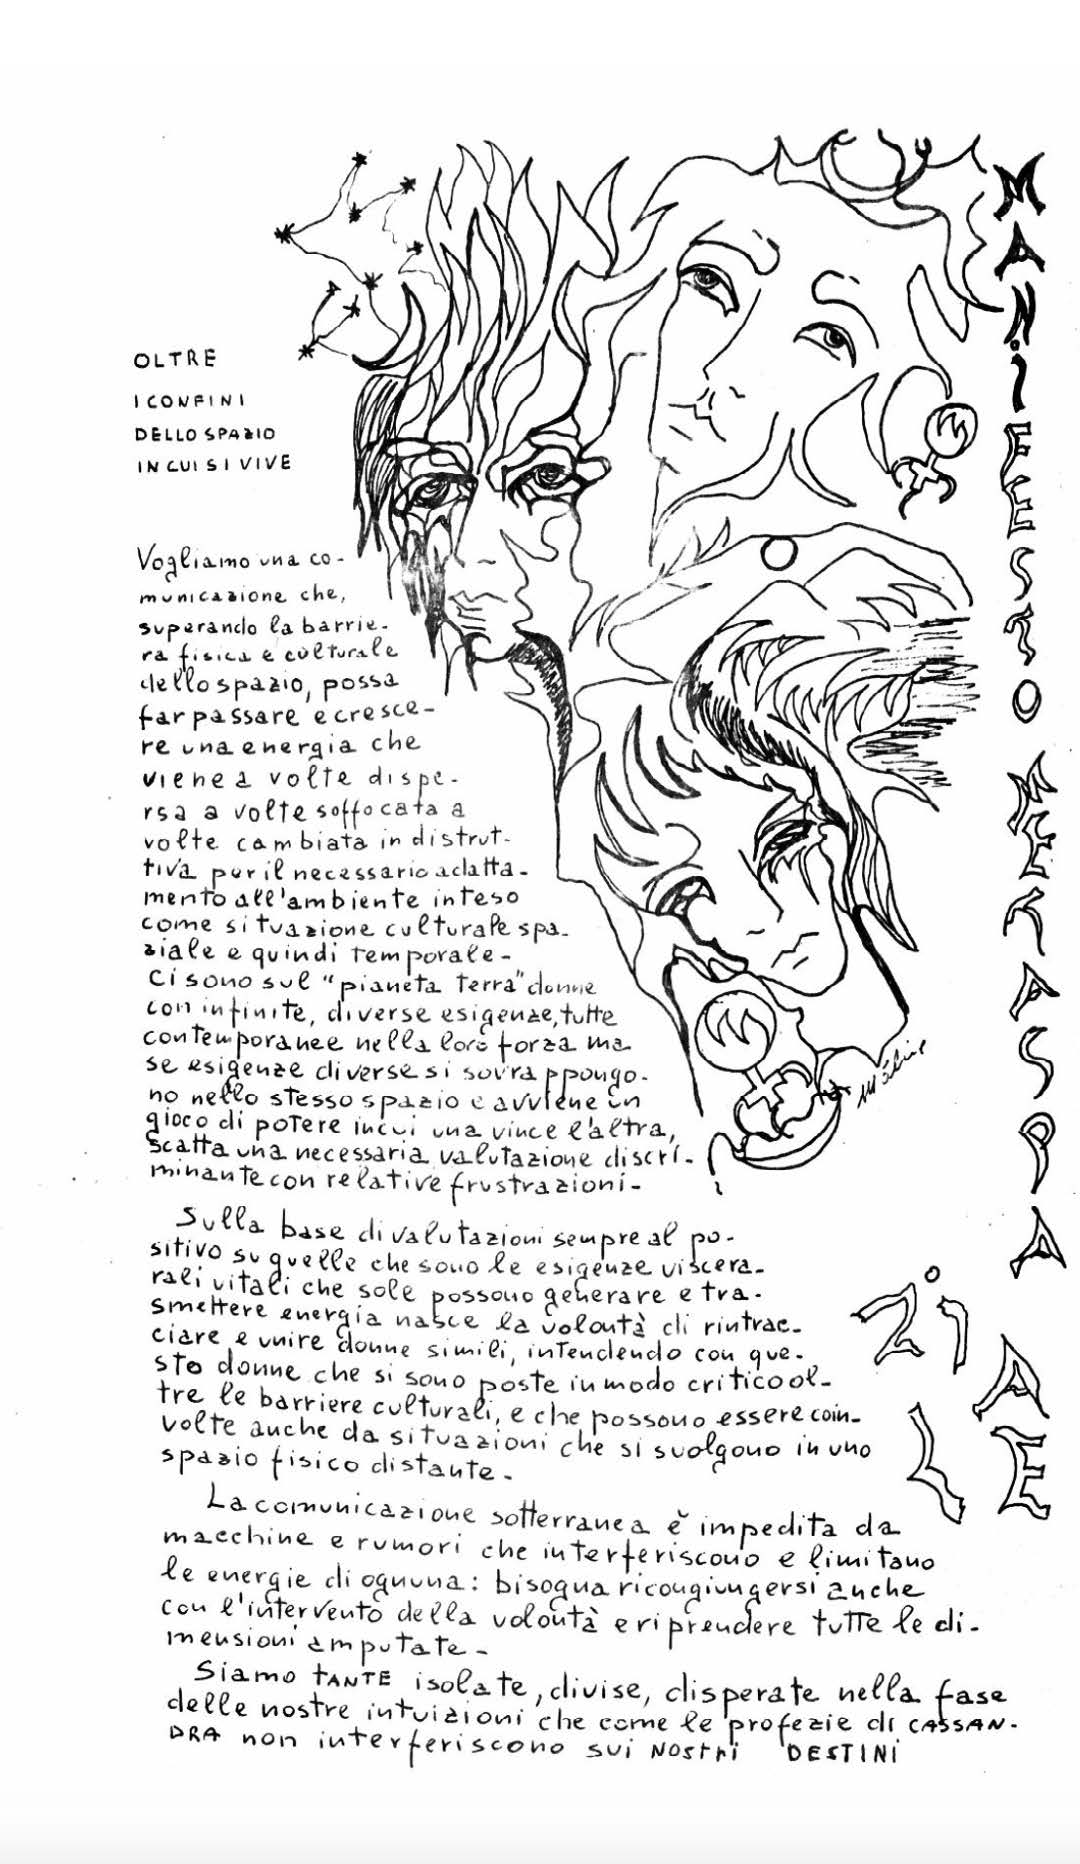 MANIFESTO METASPAZIALE
OLTRE
I CONFINI
DELLO SPAZIO
IN CUI SI VIVE
Vogliamo una co-
municazione che,
superando la barrie-
ra fisica e culturale
dello spazio, possa
far passare e cresce-
re una energia che
viene a volte dispe-
rsa a volte soffocata a
volte cambiata in distrut-
tiva per il necessario adatta-
mento all'ambiente inteso
come situazione culturale spa-
ziale e quindi temporale-
Ci sono sul "pianeta terra" donne
con infinite, diverse esigenze, tutte
contemporanee nella loro forza ma
se esigenze diverse si sovrappongo-
no nello stesso spazio e avviene un
gioco di potere in cui una vince l'altra,
scatta una necessaria valutazione discri-
minante con relative frustrazioni-
Sulla base di valutazioni sempre al po-
sitivo su quelle che sono le esigenze viscera-
rali vitali che sole possono generare e tra-
smettere energia nasce la volontà di rintrac-
ciare e unire donne simili, intendendo con que-
sto donne che si sono poste in modo critico ol-
tre le barriere culturali, e che possono essere coin-
volte anche da situazioni che si svolgono in uno
spazio fisico distante-
La comunicazione sotterranea è impedita da
macchine e rumori che interferiscono e limitano
le energie di ognuna: bisogna ricongiungersi anche
con l'intervento della volontà e riprendere tutte le di-
mensioni amputate-
Siamo TANTE isolate, divise, disperate nella fase
delle nostre intuizioni che come le profezie di CASSAN-
DRA non interferiscono sui NOSTRI DESTINI